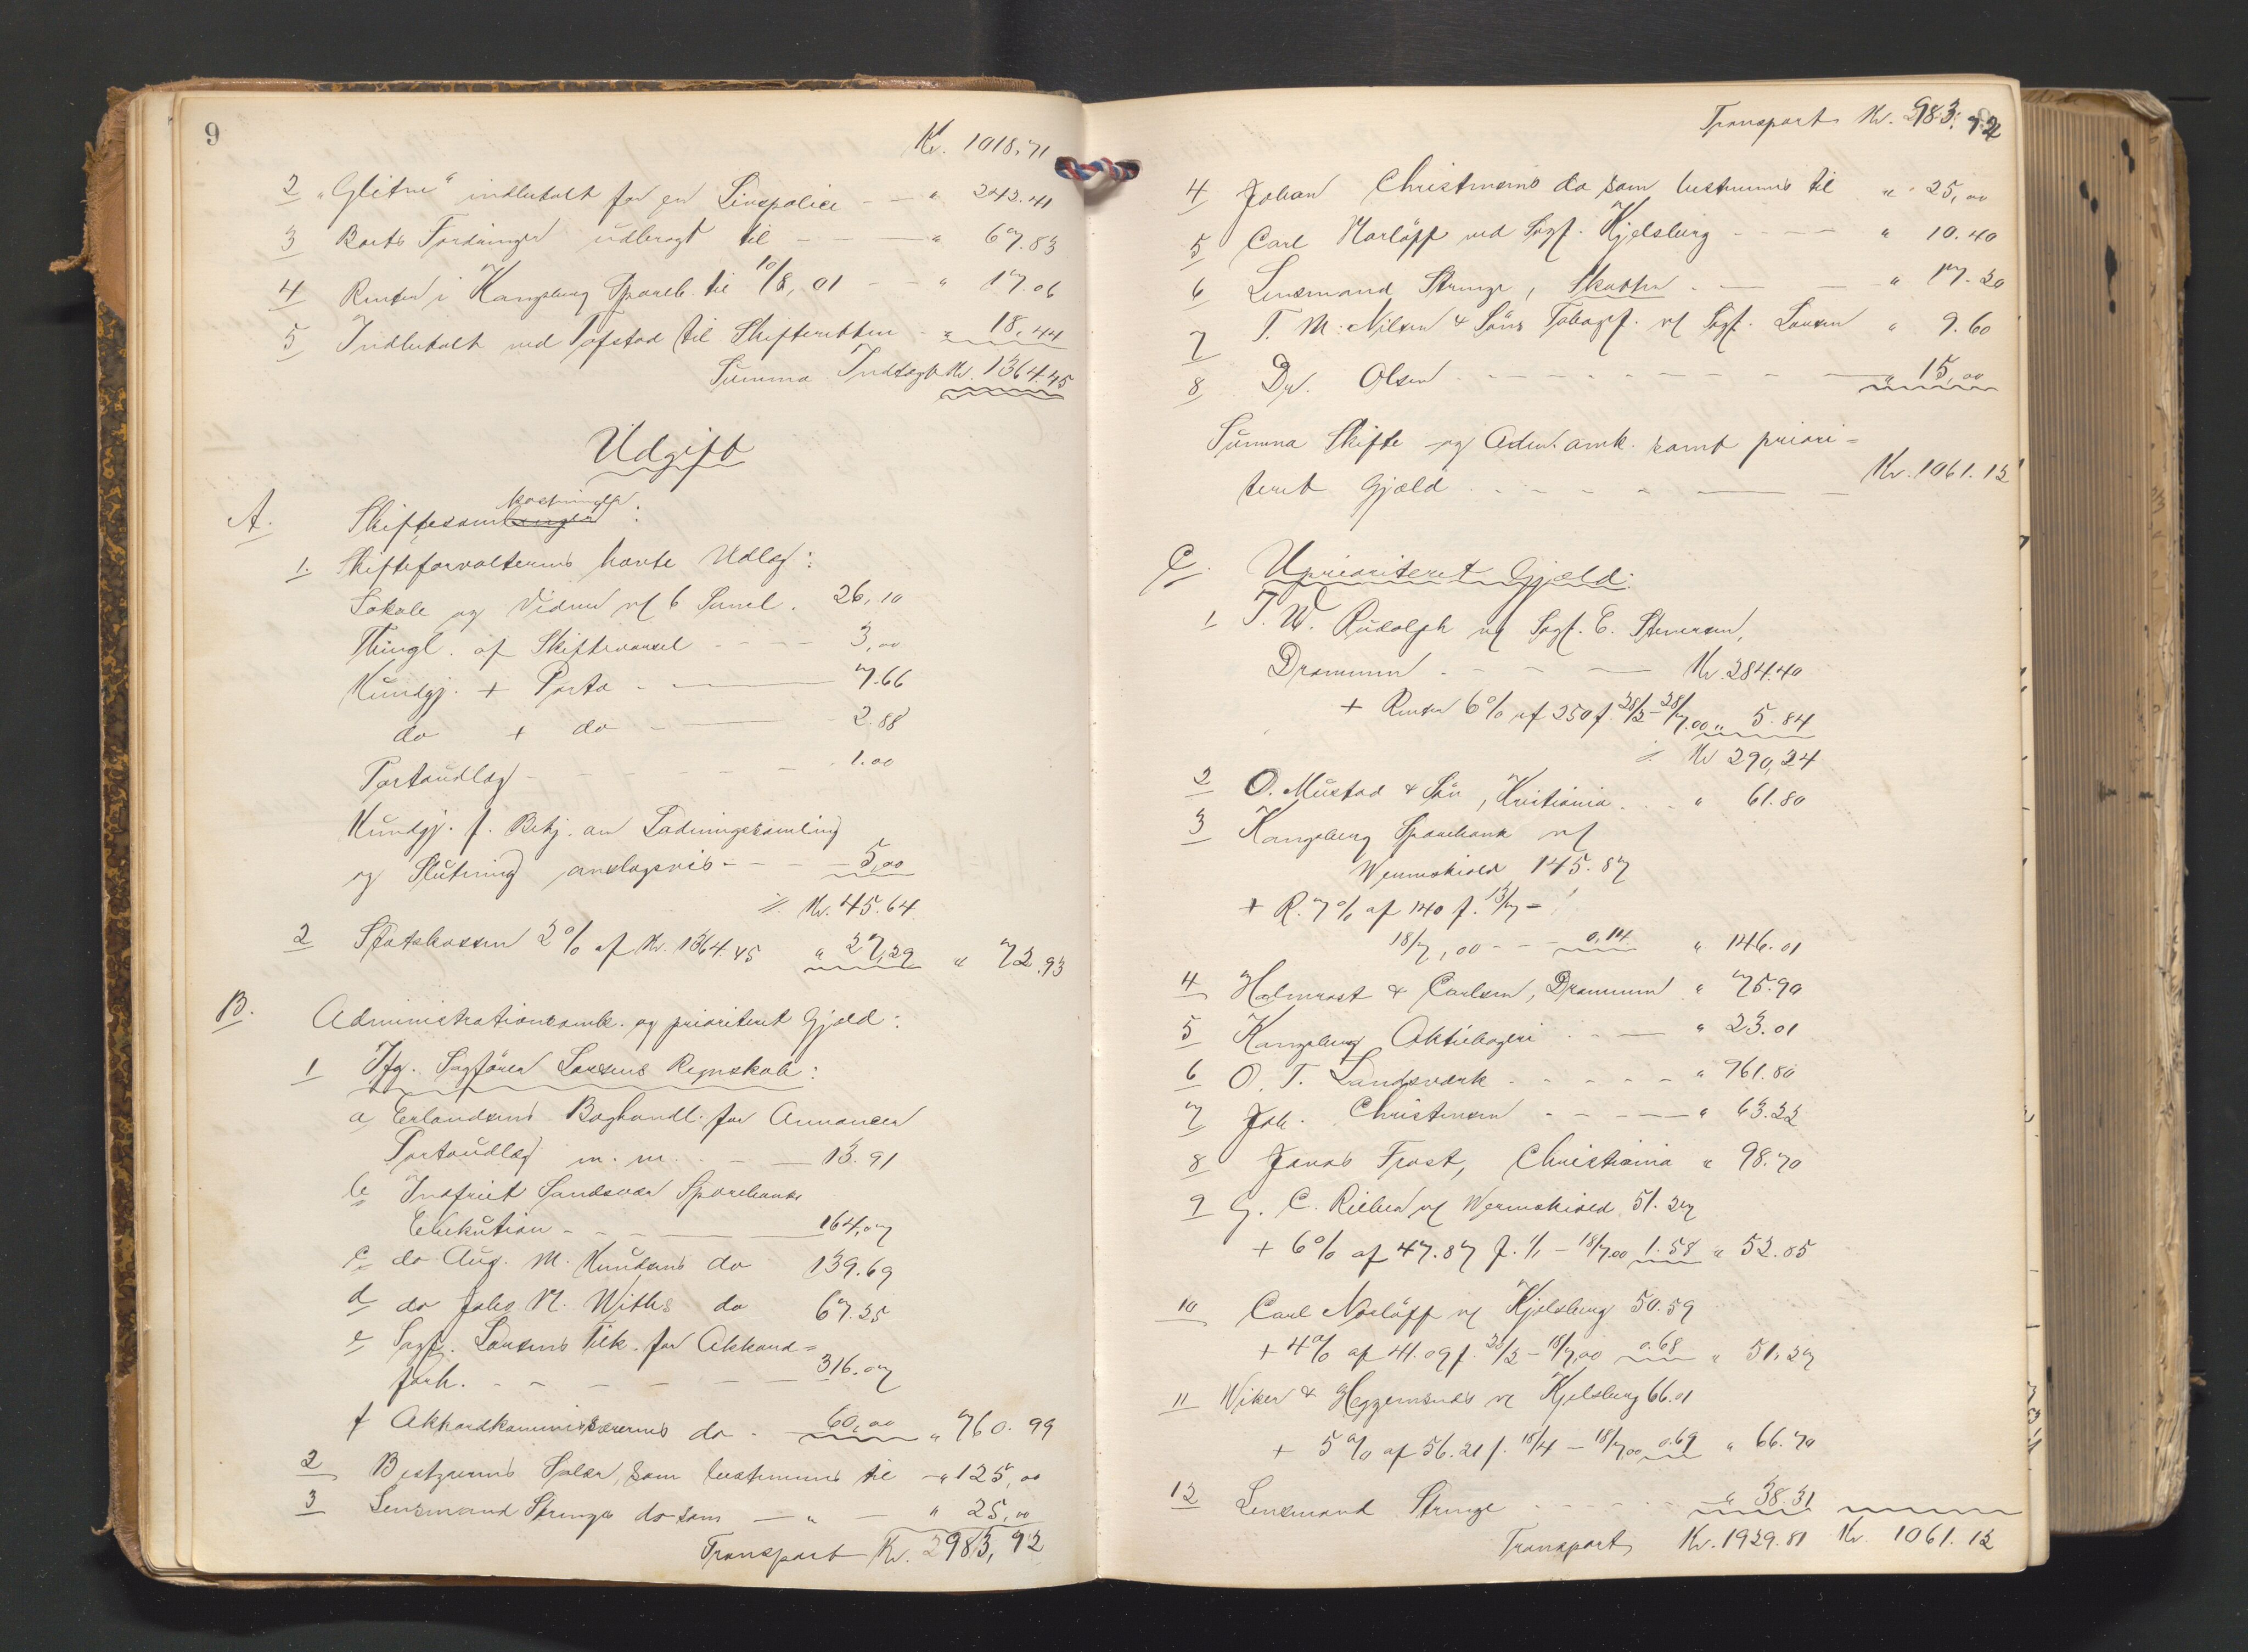 9
Kr. 1018,71
2 "Glitne" indbetalt for en Livspolice - - " 242.41
3 Boets Fordringer udbragt til - - " 67.83
4 Renter i Kongsberg Spareb. til 10/8, 01 - - " 17.06
5 Indbetalt ved Tofstad til Skifteretten - " 18,44
Summa Indtægt Kr. 1364.45
Udgift
A. Skiftesomkostninger:
1. Skifteforvalterens havte Udlæg:
Lokale og Vidner vf 6 Saml. 26,10
Thingl. af Skiftevarsel - - - 3,00
Kundgj. + Porto - 7.66
do + do - 2.88
Portoudlæg - - - - - 1.00
Kundgj. f. Bekj. om Slutningssamling
og Slutning anslagsvis - - - 5,00
Kr. 45.64
2 Statskassen 2% af Kr. 1364.45 " 27,29 " 72.93
B. Administrationsomk. og prioriteret Gjæld:
1 Ifg. Sagfører Larsens Regnskab:
a, Erlandsens Boghandl. for Annoncer
Portoudlæg m. m. - - 13.91
b Indfriet Sandsvær Sparebanks
Exekution - - - 164,07
c do Aug. M. Knudsens do 139.69
d do Johs M. Withs do 67.25
e Sagf. Larsens Tilk. for Akkord=
forh. - - - - - 316.07
f Akkordkommissærernes do - 60,00 " 760.99
2 Bestyrerens Salær, som bestemmes til - " 125,00
3 Lensmand Strenge do som - " - " 25,00
Transport Kr. 983,92
Transport Kr. 983.92
4 Johan Christensens do som bestemmes til " 25,00
5 Carl Norløff ved Sagf. Kjelsberg - - - - " 10.40
6 Lensmand Strenge, Skatter - - - " 17.20
7 T. M. Nilsen & Søns Tobaksf. vf Sagf. Larsen " 9.60
8 Dr. Olsen - - - - - - - - " 15,00
Summa Skifte- og Adm. omk. samt priori=
teret Gjæld . - - - - - Kr. 1061.12
C. Uprioriteret Gjæld:
1 T. W. Rudolph vf Sagf. E. Steversen,
Drammen - - - - Kr. 284.40
+ Renter 6% af 250 f. 28/2 - 28/7.00 " 5.84
Kr 290,24
2 O. Mustad & Søn, Kristiania . . - " 61.80
3 Kongsberg Sparebank vf
Wermskiold 145.87
+ R. 7% af 140 f. 13/7 -
18/7, 00 - - 0,14 " 146.01
4 Holmrast & Carlsen, Drammen " 75.90
5 Kongsberg Aktiebageri . - - " 23.01
6 O. T. Landsværk - - - - - " 961.80
7 Joh. Christensen - - - - " 63.22
8 Jonas Frost, Christiania " 98.70
9 G. C. Rieber vf Wermskiold 51.27
+ 6% af 47.87 f. 1/1 - 18/7.00 1.58 " 52.85
10 Carl Norløff vf Kjelsberg 50.59
+ 4% af 41.09 f. 20/2 - 18/7,00 0.68 " 51,27
11 Wiker & Heggemsnes vf Kjelsberg 66.01
+ 5% af 56.21 f. 18/4 - 18/7 00 0.69 " 66.70
12 Lensmand Strenge - - - - - " 38.31
Transport Kr. 1929.81 Kr 1061.12